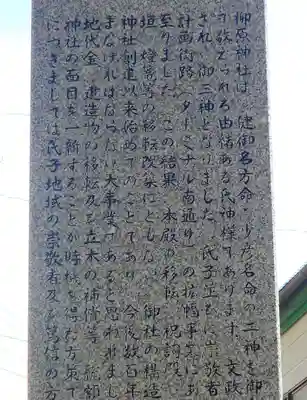 柳原神社は、建御名方命・少彦名命の二神を御
で数えられる由緒ある氏神様であります。文政
され、御三神となりました。氏子並びに崇敬者
計画街路(ターミナル南通り)の拡幅事業にあ
至りました。この結果、本殿の移転、祝詞殿
垣、燈篭等の移転改築にともない、御社の構造
神社創建以来始めてのことであり、今後数百年
まなければならない大事業であると思われまし
地代金、建造物の移転及び立木の補償等、総額
神社の面目を一新することが時宜を得た方策で
につきましては氏子地域の崇敬者及び篤信の方